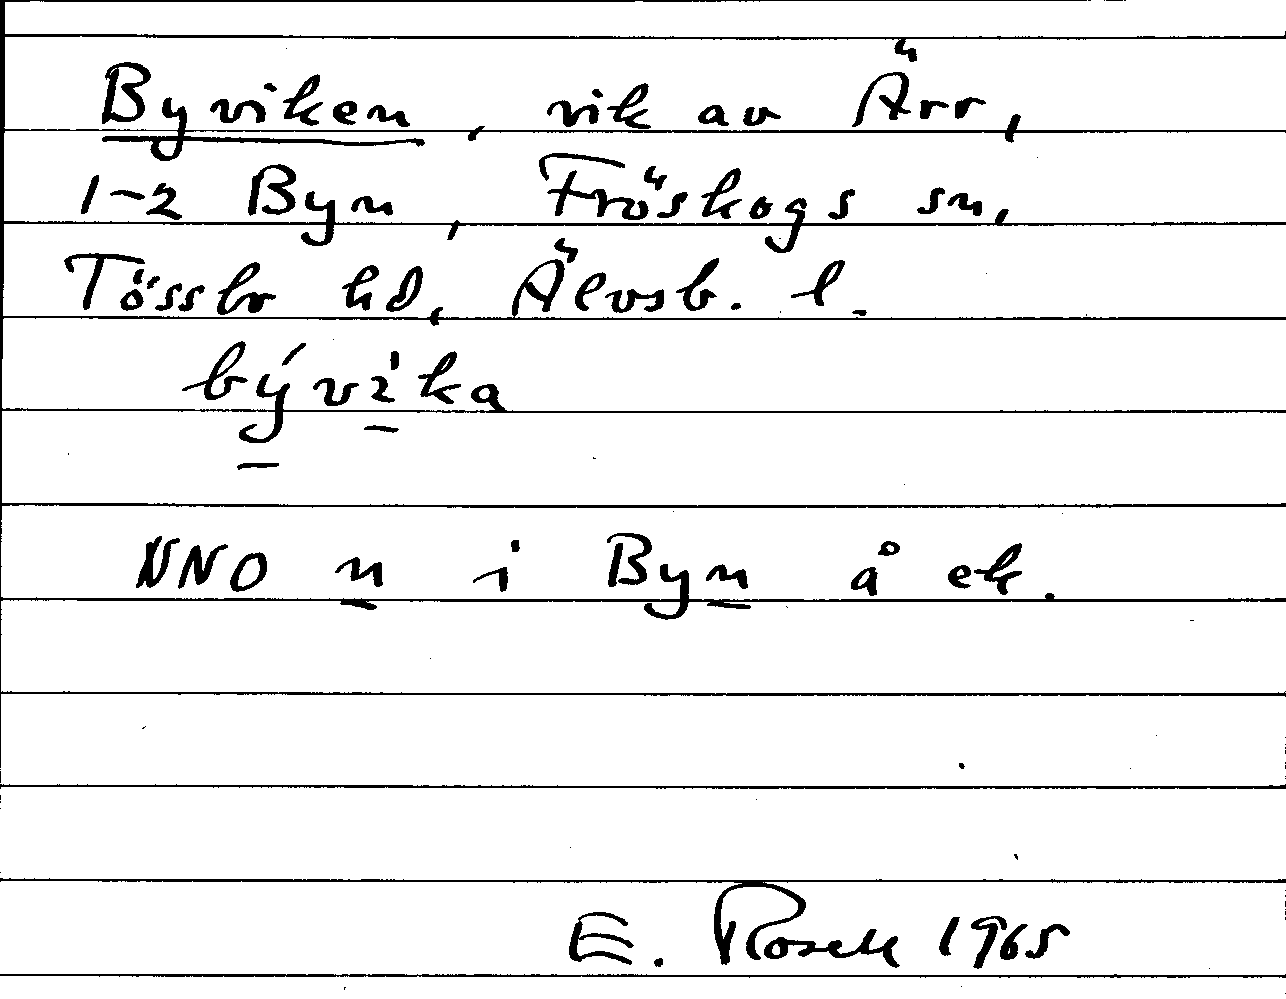 Byviken, vik av Ärr,
1-2 Byn, Fröskogs sn,
Tössbo hd, Älvsb. l.
bývìka
NNO n i Byn å ek.
E. Rosell 1965